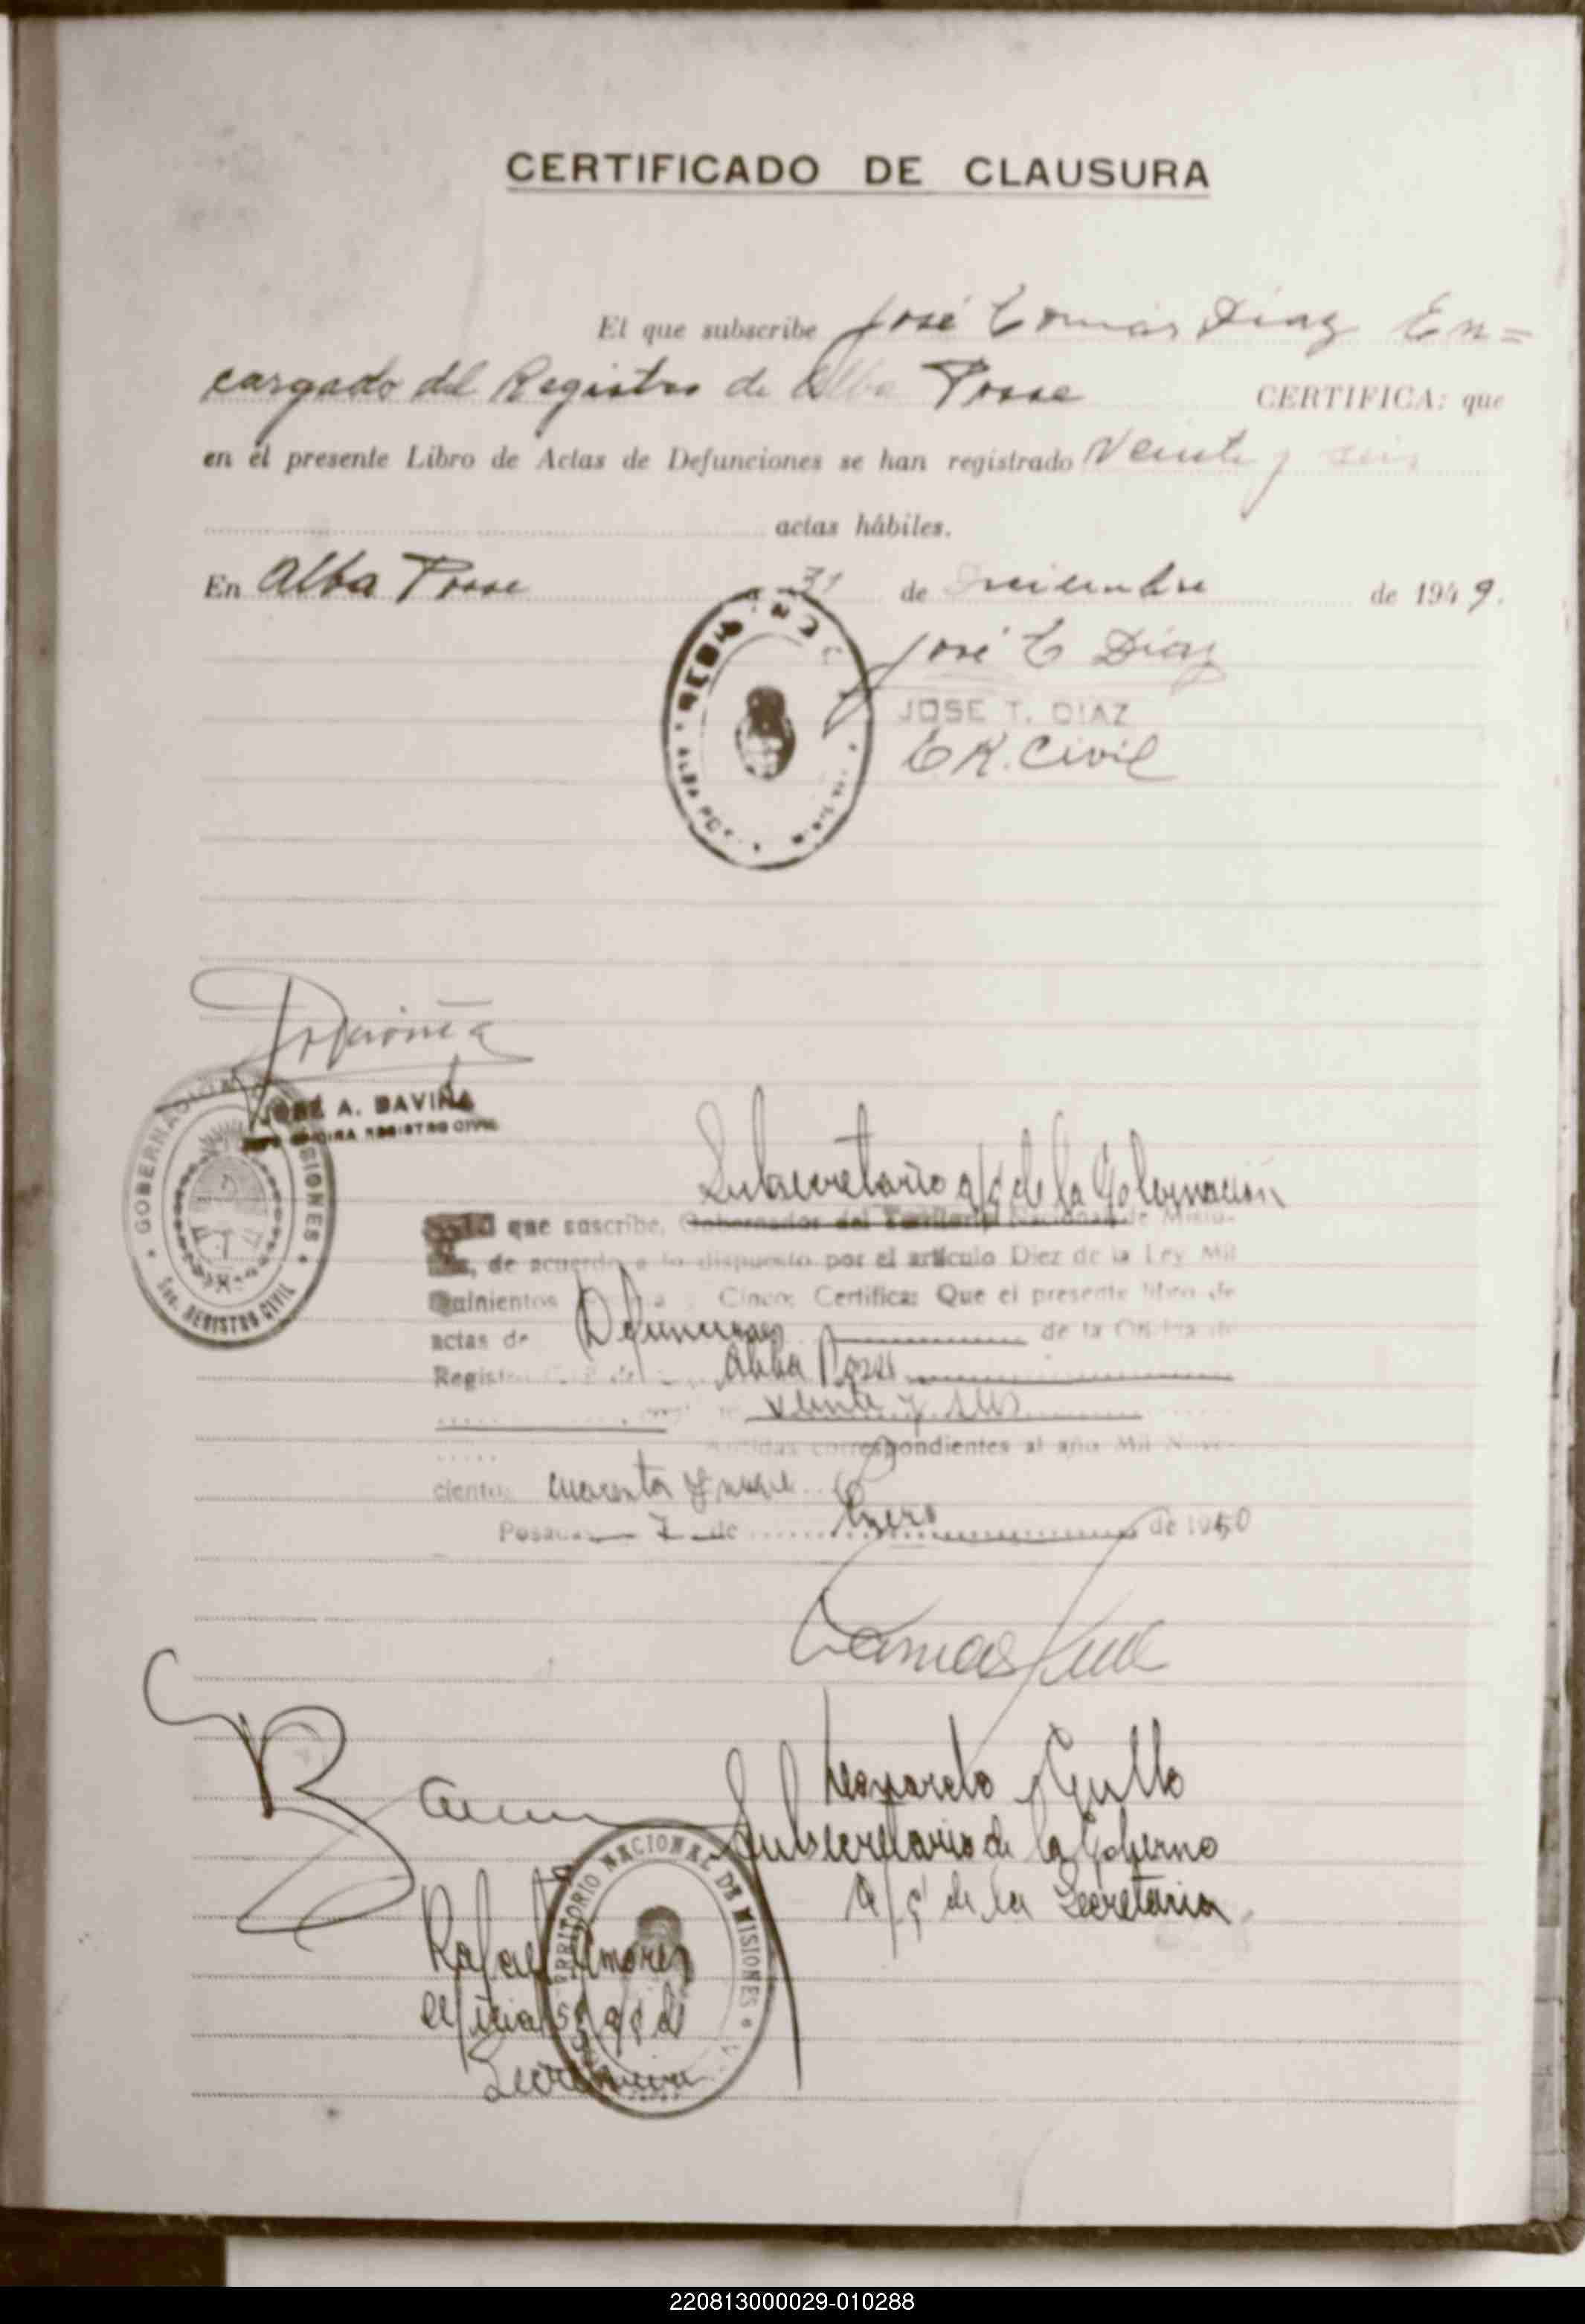 CERTIFICADO DE CLAUSURA
El que subscribe José Tomás Díaz En=
cargado del Registro de Alba Posse CERTIFICA: que
en el presente Libro de Actas de Defunciones se han registrado Veinte y seis
actas hábiles.
En Alba Posse 31 de Diciembre de 1949.
José T Díaz
JOSE T. DIAZ
E R. Civil
JOSÉ A. DAVIÑA
OFICINA REGISTRO CIVIL
GOBERNACION MISIONES
Sec. REGISTRO CIVIL
Subsecretario a/c de la Gobernación
que suscribe, Gobernador del Territorio Nacional de Misio-
de acuerdo a lo dispuesto por el artículo Diez de la Ley Mil
Quinientos Cinco; Certifica: Que el presente libro de
actas de Defunciones de la Oficina de
Registro Civil de Alba Posse
veinte y seis
Partidas correspondientes al año Mil Nove-
cientos cuarenta y nueve
Posadas 7 de Enero de 1950
Leonardo Gullo
Subsecretario de la Goberno
a/c de la Secretaria
TERRITORIO NACIONAL DE MISIONES
Rafael Amores
Oficial 5º a/c de
Secretaria
220813000029-010288